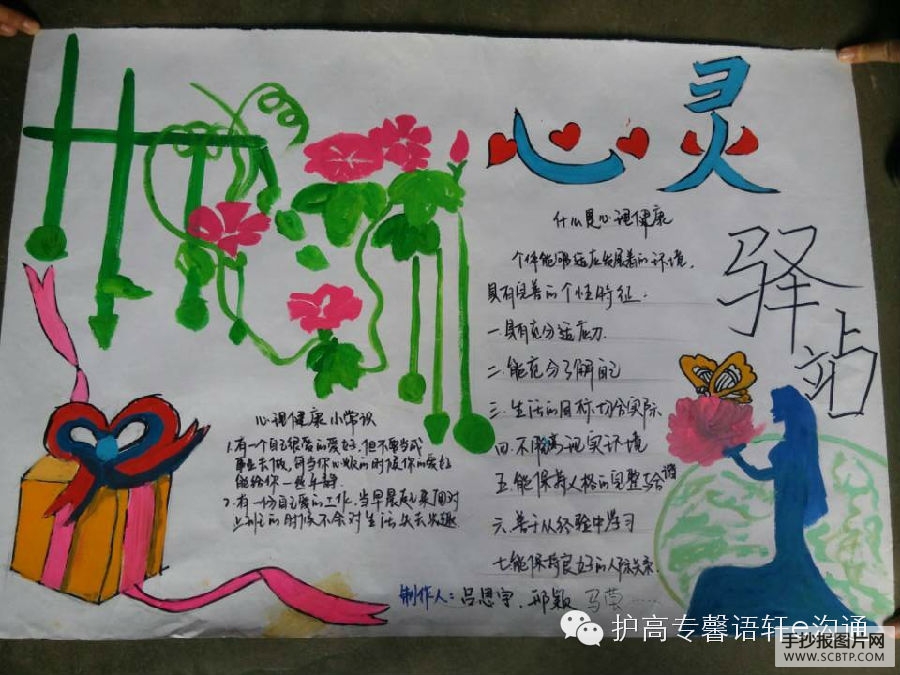 心灵
驿站
什么是心理健康
个体能够适应发展着的环境,
具有完善的个性特征.
一.具有充分适应力
二.能充分了解自己
三.生活的目标切合实际
四.不脱离现实环境
五.能保持人格的完整与和谐
六.善于从经验中学习
七能保持良好的人际关系.
心理健康小常识
1.有一个自己很爱的爱好,但不要当成
事业去做,何当你心烦的时候你的爱好
能给你一些
2.有一份自己爱的工作.当早晨起来面对
的时候不会对生活失去兴趣
制作人：吕思宇.邱颖.马莹……
护高专馨语轩e沟通
手抄报图片网
WWW.SCBTP.COM